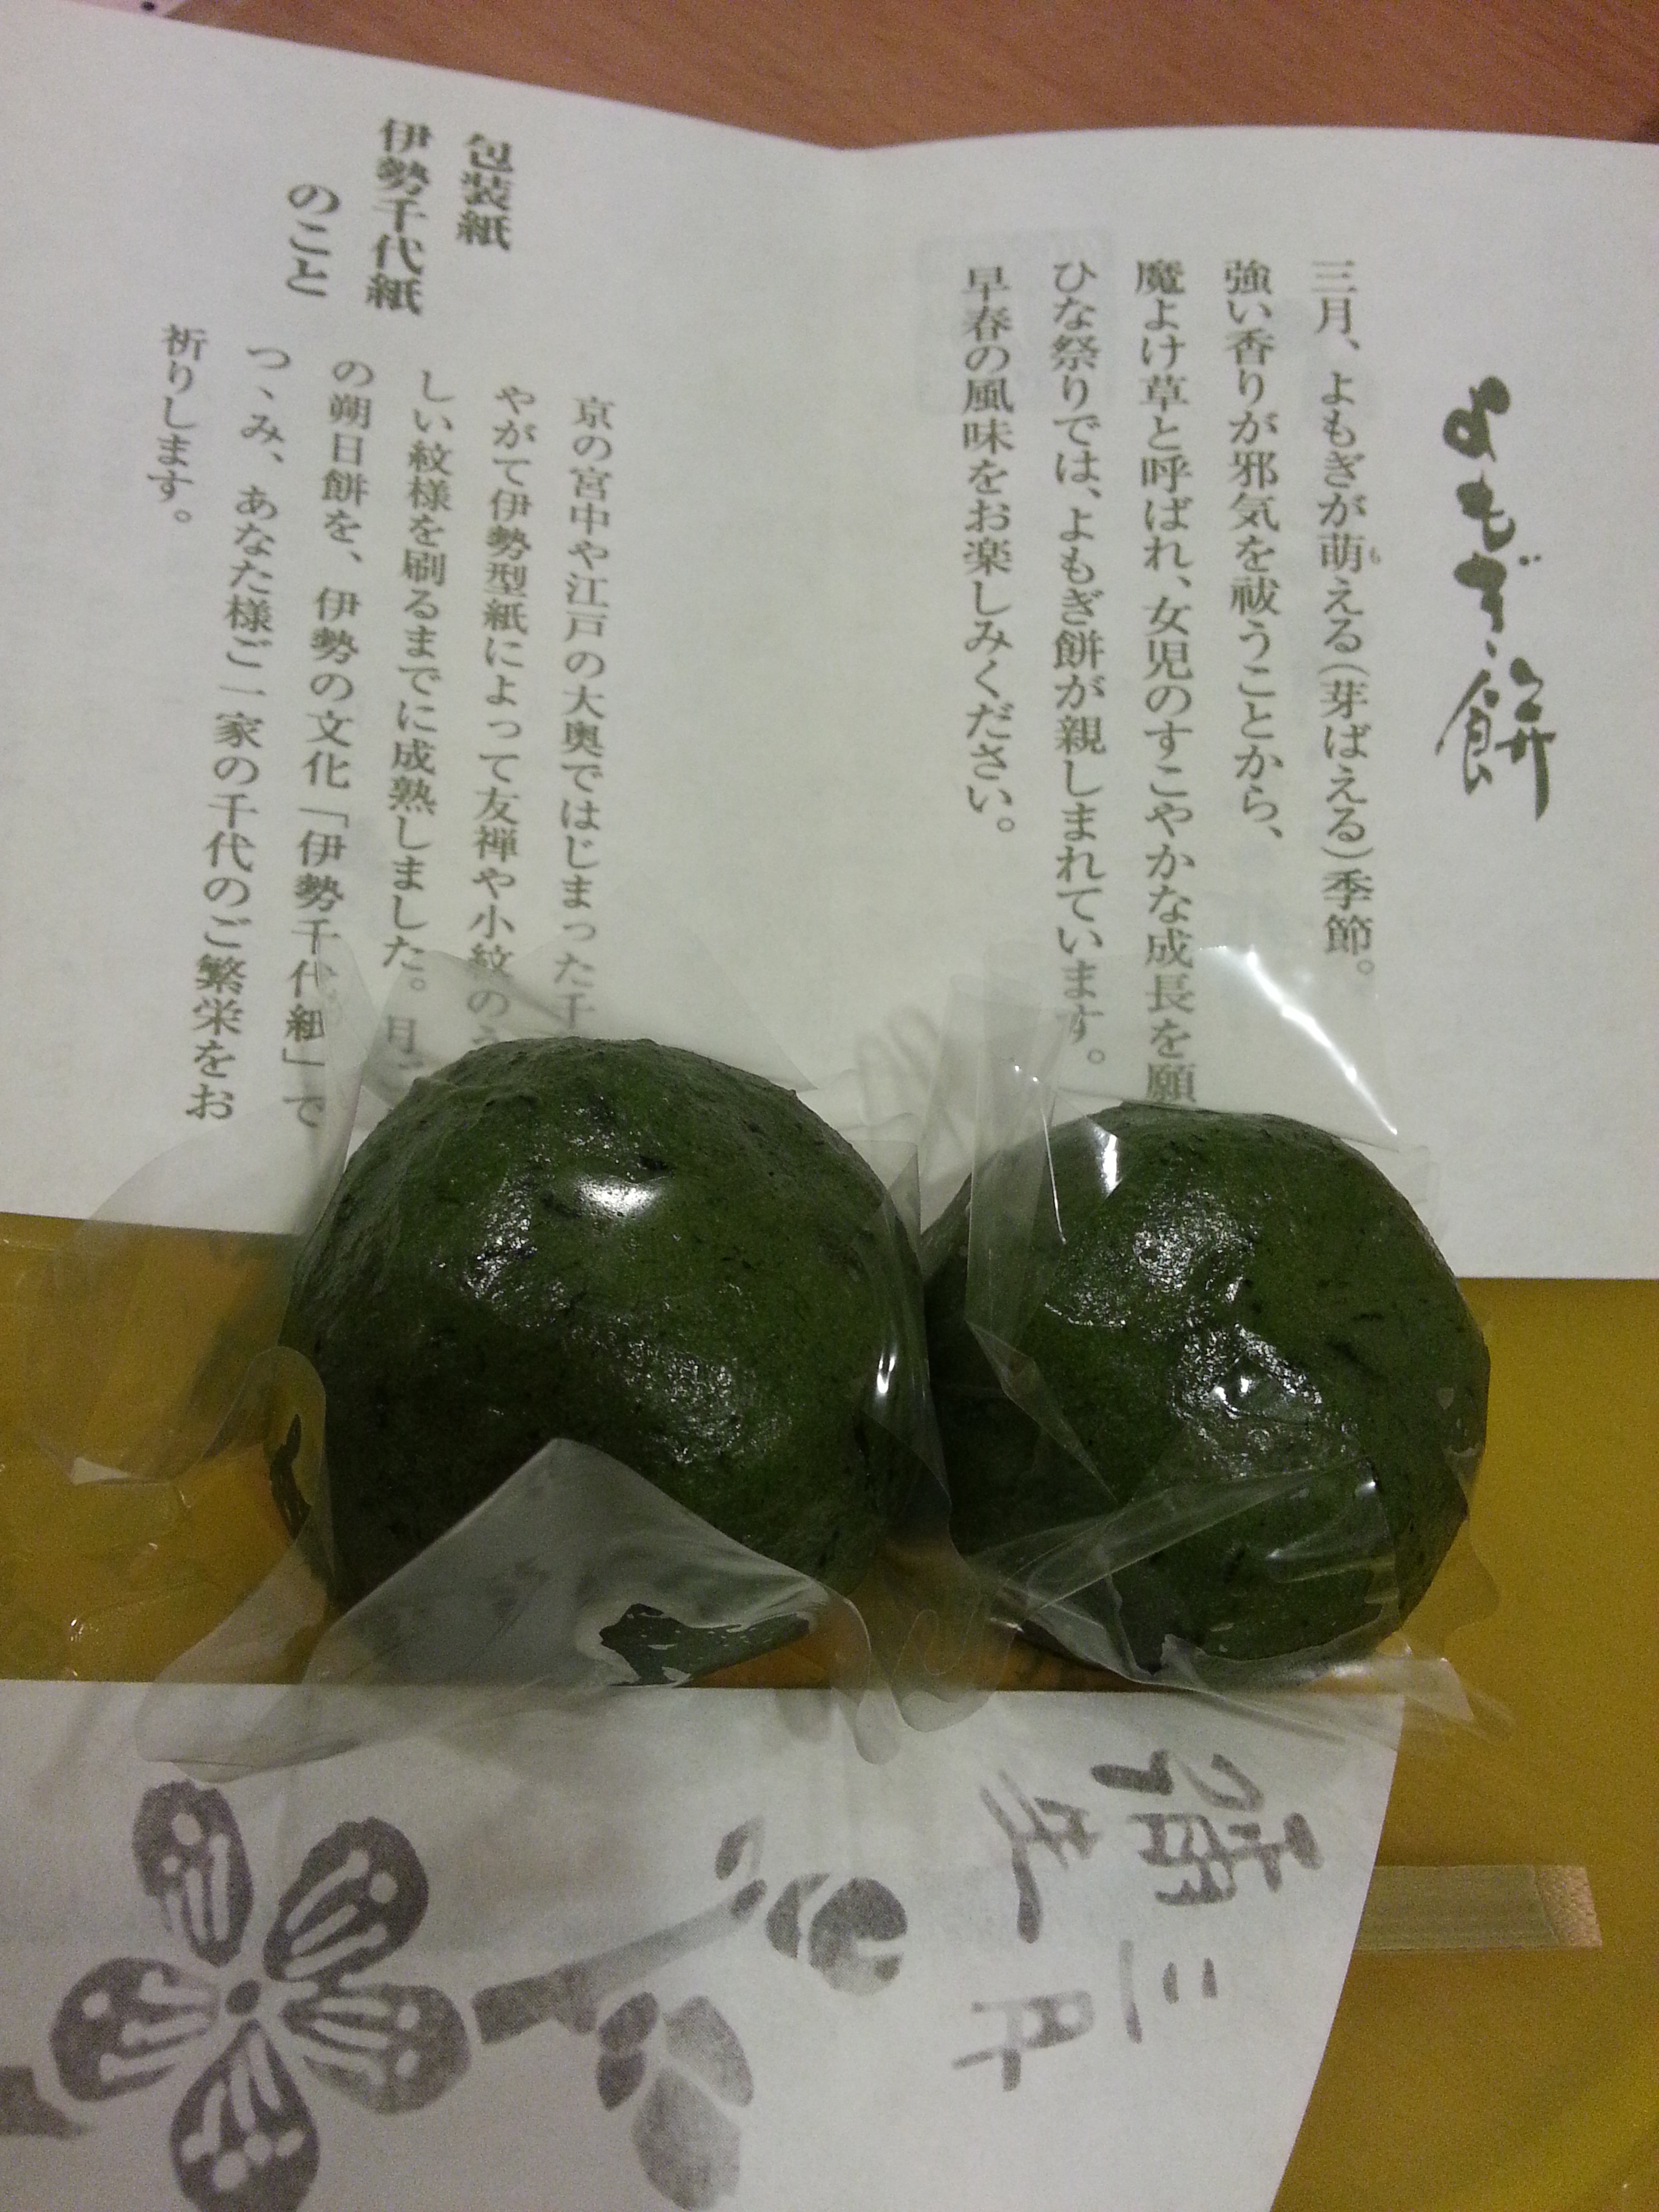 よもぎ餅
三月、よもぎが萌える(芽ばえる)季節。
も
強い香りが邪気を祓うことから、
魔よけ草と呼ばれ、女児のすこやかな成長を願
ひな祭りでは、よもぎ餅が親しまれています。
早春の風味をお楽しみください。
包装紙
伊勢千代紙
のこと
京の宮中や江戸の大奥ではじまった千
やがて伊勢型紙によって友禅や小紋の
しい紋様を刷るまでに成熟しました。月
の朔日餅を、伊勢の文化「伊勢千代紙」で
つゝみ、あなた様ご一家の千代のご繁栄をお
祈りします。
三月
弥生